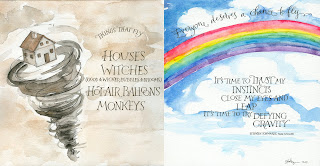 THINGS THAT FLY
HOUSES
WITCHES
HOT AIR BALLOONS
MONKEYS
Everyone deserves a chance to fly
IT'S TIME TO TRUST MY
INSTINCTS
CLOSE MY EYES AND
LEAP
IT'S TIME TO TRY DEFYING
GRAVITY